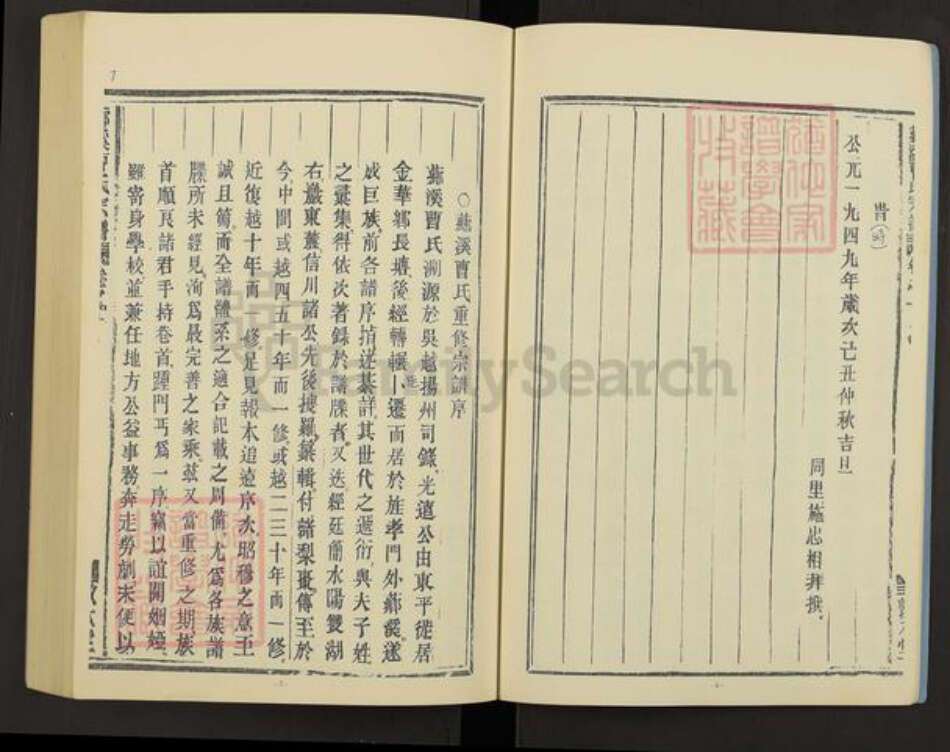 旹(時)
公元一九四九年歲次己丑仲秋吉旦
同里施忠相拜撰
○蘇溪曹氏重修宗譜序
蘇溪曹氏溯源於吳越揚州司錄光遠公由東平徙居
金華鄉長塘後經轉輾小遷而居於旌孝門外蘇溪遂
成巨族前各譜序描述綦詳其世代之遞衍與夫子姓
之彙集得依次著錄於譜牒者又迭經廷蘭水陽雙湖
右巖東叢信川諸公先後搜羅纂輯付諸梨棗傳至於
今中間或越四五十年而一修或越二三十年而一修
近復越十年而 修足見報本追遠序次昭穆之意至
誠且篤而全譜體系之適合記載之周備尤為各族譜
牒所未經見洵為最完善之家乘茲又當重修之期族
首順良諸君手持卷首踵門丐為一序竊以誼關姻婭
雖寄身學校並兼任地方公益事務奔走勞劇未便以
FamilySearch
7